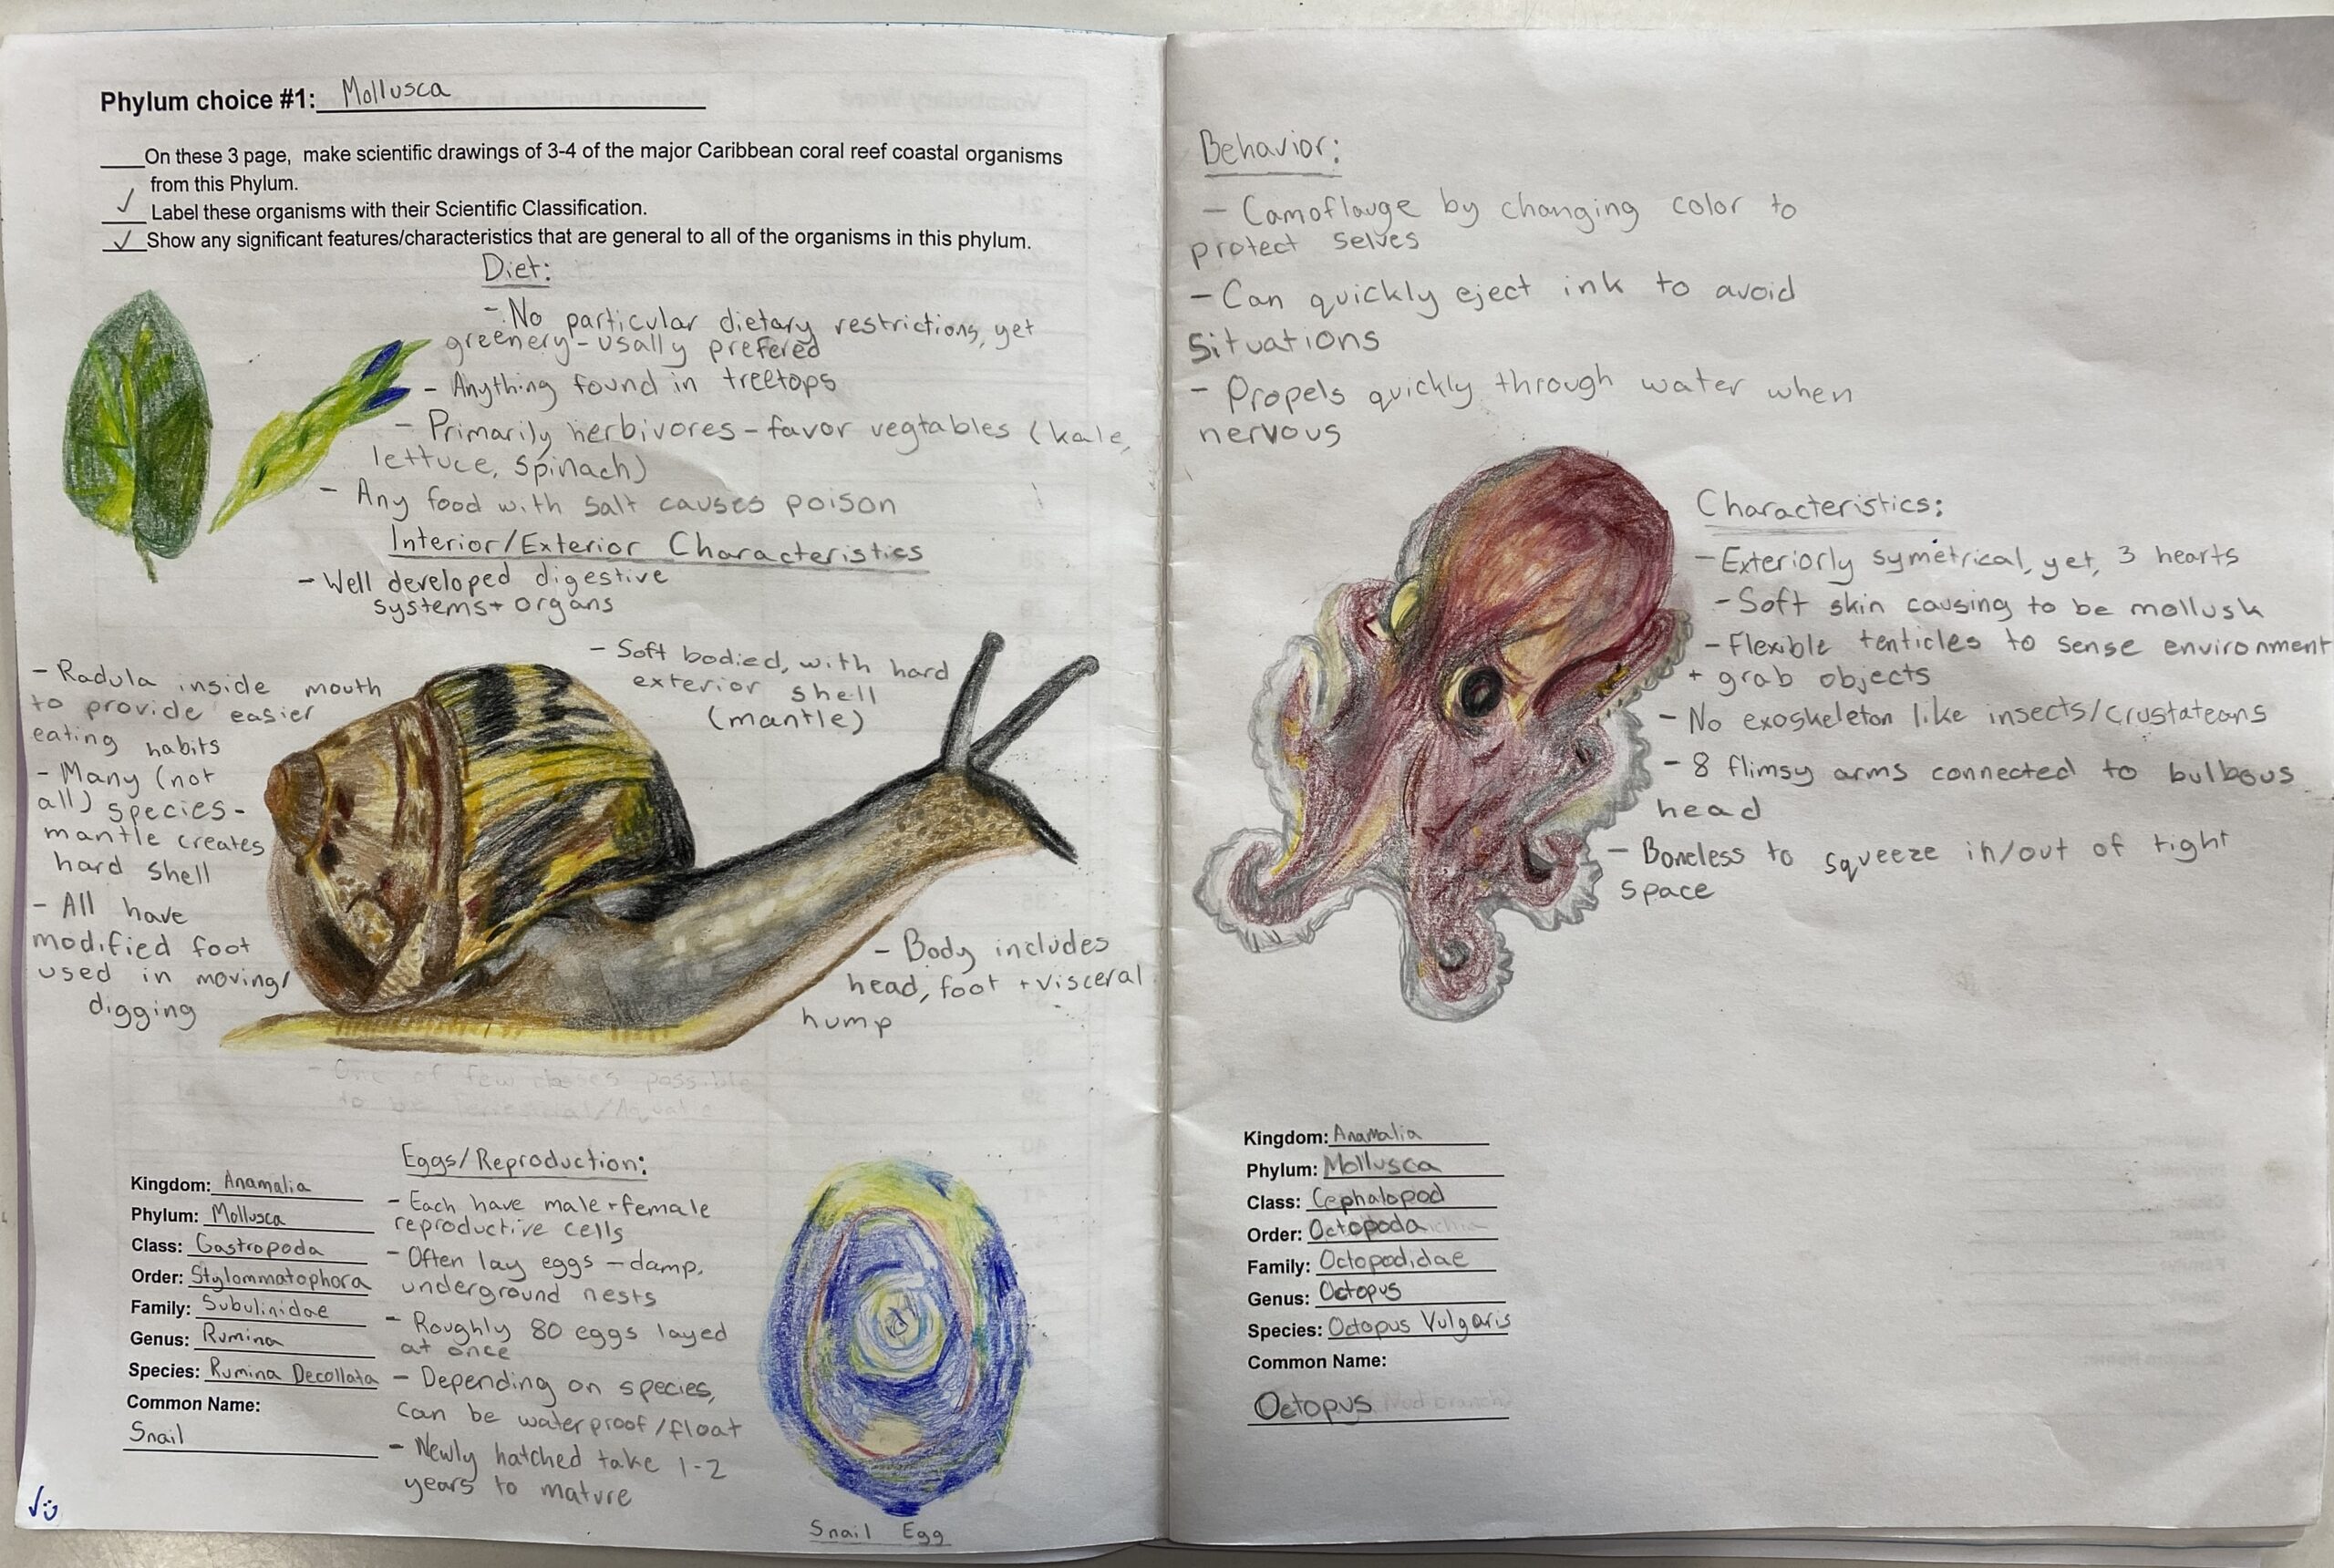 Phylum choice #1: Mollusca
On these 3 page, make scientific drawings of 3-4 of the major Caribbean coral reef coastal organisms
from this Phylum.
✓ Label these organisms with their Scientific Classification.
✓ Show any significant features/characteristics that are general to all of the organisms in this phylum.
Diet:
- No particular dietary restrictions, yet
greenery - usally prefered
- Anything found in treetops
- Primarily herbivores - favor vegtables (kale,
lettuce, spinach)
- Any food with salt causes poison
Interior/Exterior Characteristics
- Well developed digestive
systems + organs
- Soft bodied, with hard
exterior shell
(mantle)
- Radula inside mouth
to provide easier
eating habits
- Many (not
all) species -
mantle creates
hard shell
- All have
modified foot
used in moving/
digging
- Body includes
head, foot + visceral
hump
- One of few classes possible
to be Terrestrial/Aquatic
Kingdom: Anamalia
Phylum: Mollusca
Class: Gastropoda
Order: Stylommatophora
Family: Subulinidae
Genus: Rumina
Species: Rumina Decollata
Common Name:
Snail
Eggs/Reproduction:
- Each have male + female
reproductive cells
- Often lay eggs - damp,
underground nests
- Roughly 80 eggs layed
at once
- Depending on species,
can be waterproof/float
- Newly hatched take 1-2
years to mature
Snail Egg
Behavior:
- Camoflauge by changing color to
protect selves
- Can quickly eject ink to avoid
situations
- Propels quickly through water when
nervous
Characteristics:
- Exteriorly symetrical, yet, 3 hearts
- Soft skin causing to be mollusk
- Flexible tenticles to sense environment
+ grab objects
- No exoskeleton like insects/crustateans
- 8 flimsy arms connected to bulbous
head
- Boneless to squeeze in/out of tight
space
Kingdom: Anamalia
Phylum: Mollusca
Class: Cephalopod
Order: Octopoda
Family: Octopodidae
Genus: Octopus
Species: Octopus Vulgaris
Common Name:
Octopus